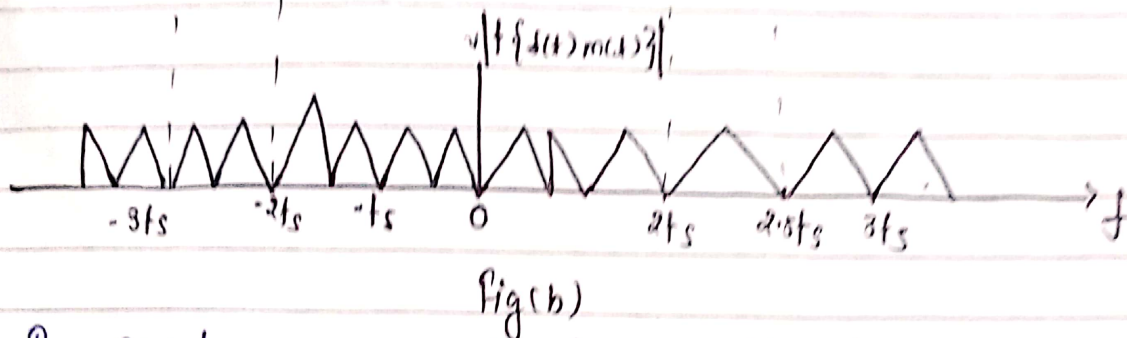 |f{s(t)m(t)}|
-3fs -2fs -fs 0 2fs 2.5fs 3fs f
Fig(b)